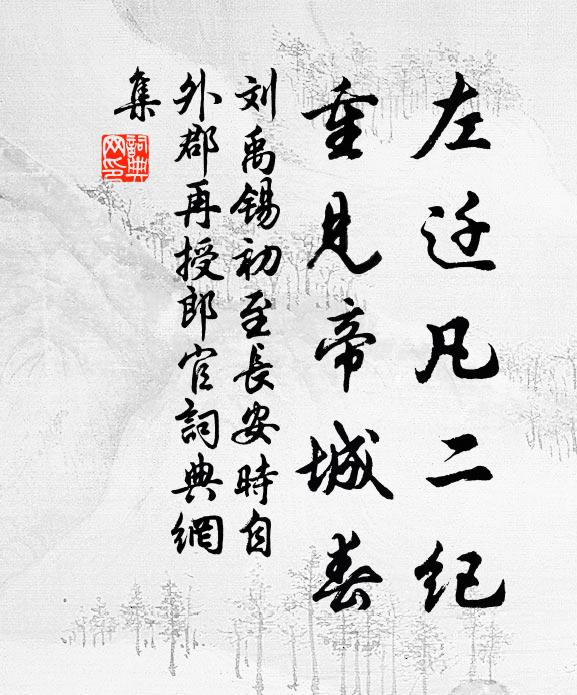 左迁凡二纪
重见帝城春
刘禹锡初至长安时自
外郡再授郎官詞典網
集
詞典
网印